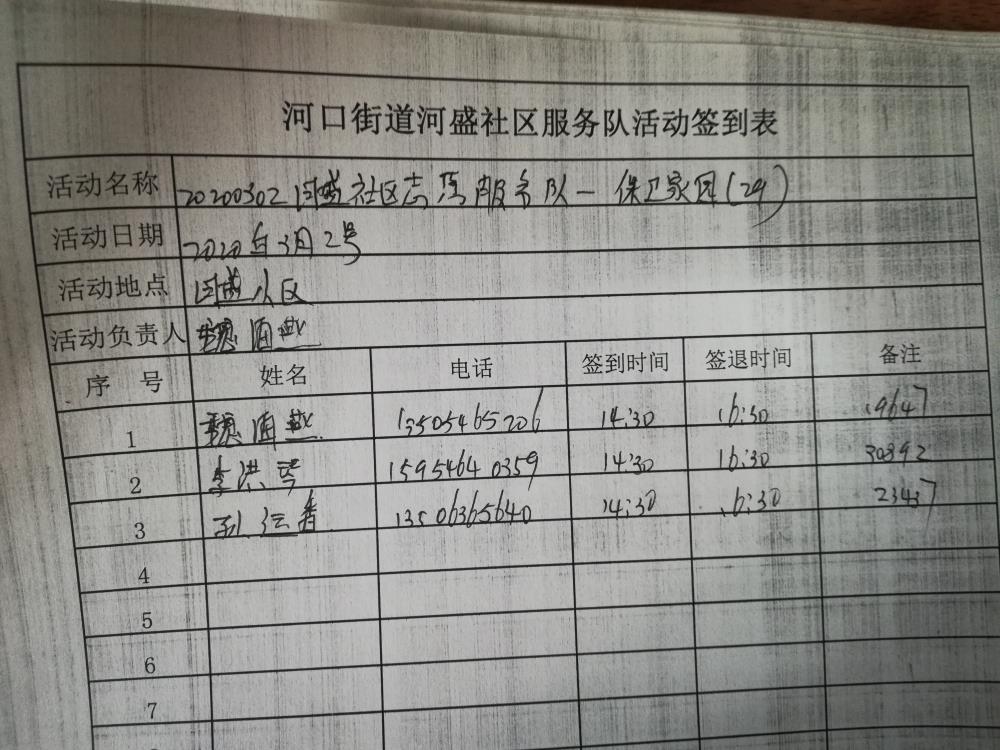 河口街道河盛社区服务队活动签到表
活动名称 20200302河盛社区志愿服务队—保卫家园(29)
活动日期 2020年3月2号
活动地点 小区
活动负责人
序 号 姓名 电话 签到时间 签退时间 备注
1 13505465206 14:30 16:30 19647
2 李洪琴 15954640359 14:30 16:30 30392
3 13506365640 14:30 16:30 23437
4
5
6
7